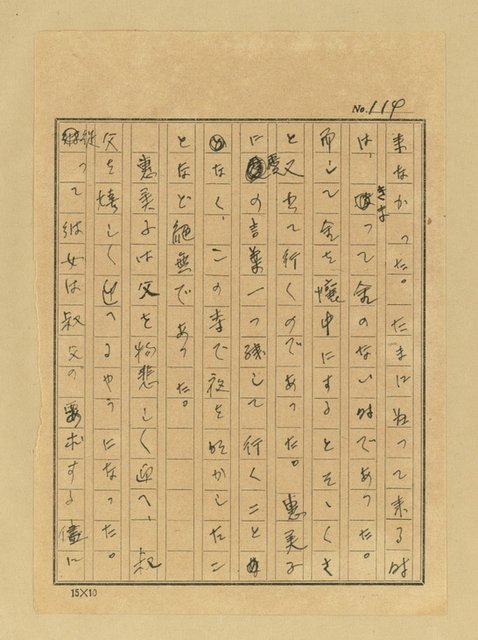 No. 114
来なかった。たまに狂って来る時
は、きまって金のない時であった。
而して金を懐中にするとそゝくさ
と又出て行くのであった。惠美子
に慶の言葉一つ残して行くことも
なく、この家で夜を明かしたこ
となど絶無であった。
惠美子は父を物悲しく迎へ、叔
父を嬉しく迎へるやうになった。
従って彼女は叔父の要求する儘に
15×10